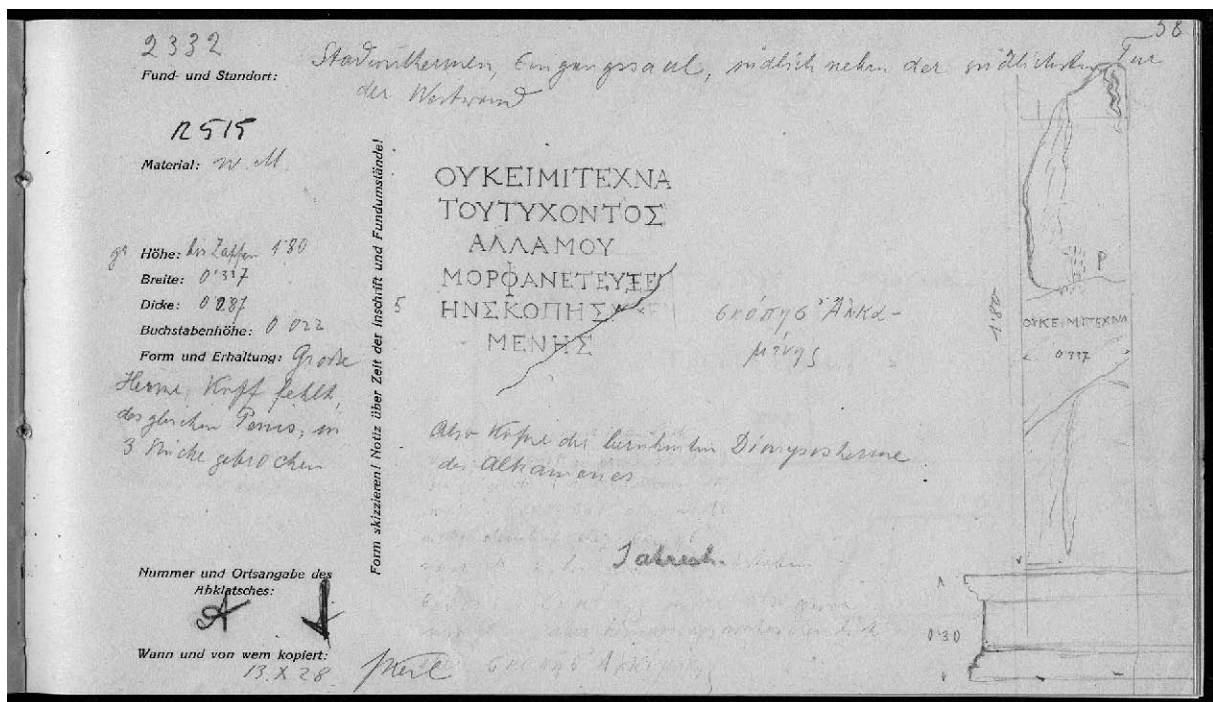 58
2332
Fund- und Standort:
Stadionthermen, Eingangssaal, südlich neben der südlichsten Tür
der Westwand
Material: w. M.
Höhe: bis Zapfen 1'80
Breite: 0'337
Dicke: 0'287
Buchstabenhöhe: 0'022
Form und Erhaltung: Große
Herme, Kopf fehlt,
desgleichen Penis, in
3 Stücke gebrochen
Nummer und Ortsangabe des
Abklatsches:
Wann und von wem kopiert:
13. X 28 Keil
Form skizzieren! Notiz über Zeit der Inschrift und Fundumstände!
ΟΥΚΕΙΜΙΤΕΧΝΑ
ΤΟΥΤΥΧΟΝΤΟΣ
ΑΛΛΑΜΟΥ
ΜΟΡΦΑΝΕΤΕΥΞΕ
5 ΗΝΣΚΟΠΗΣ
ΜΕΝΗΣ
σκόπησ' Ἀλκα-
μένης
Also Kopie der berühmten Dionysosherme
des Alkamenes
P
1.80
ΟΥΚΕΙΜΙΤΕΧΝΑ
0'337
0'30